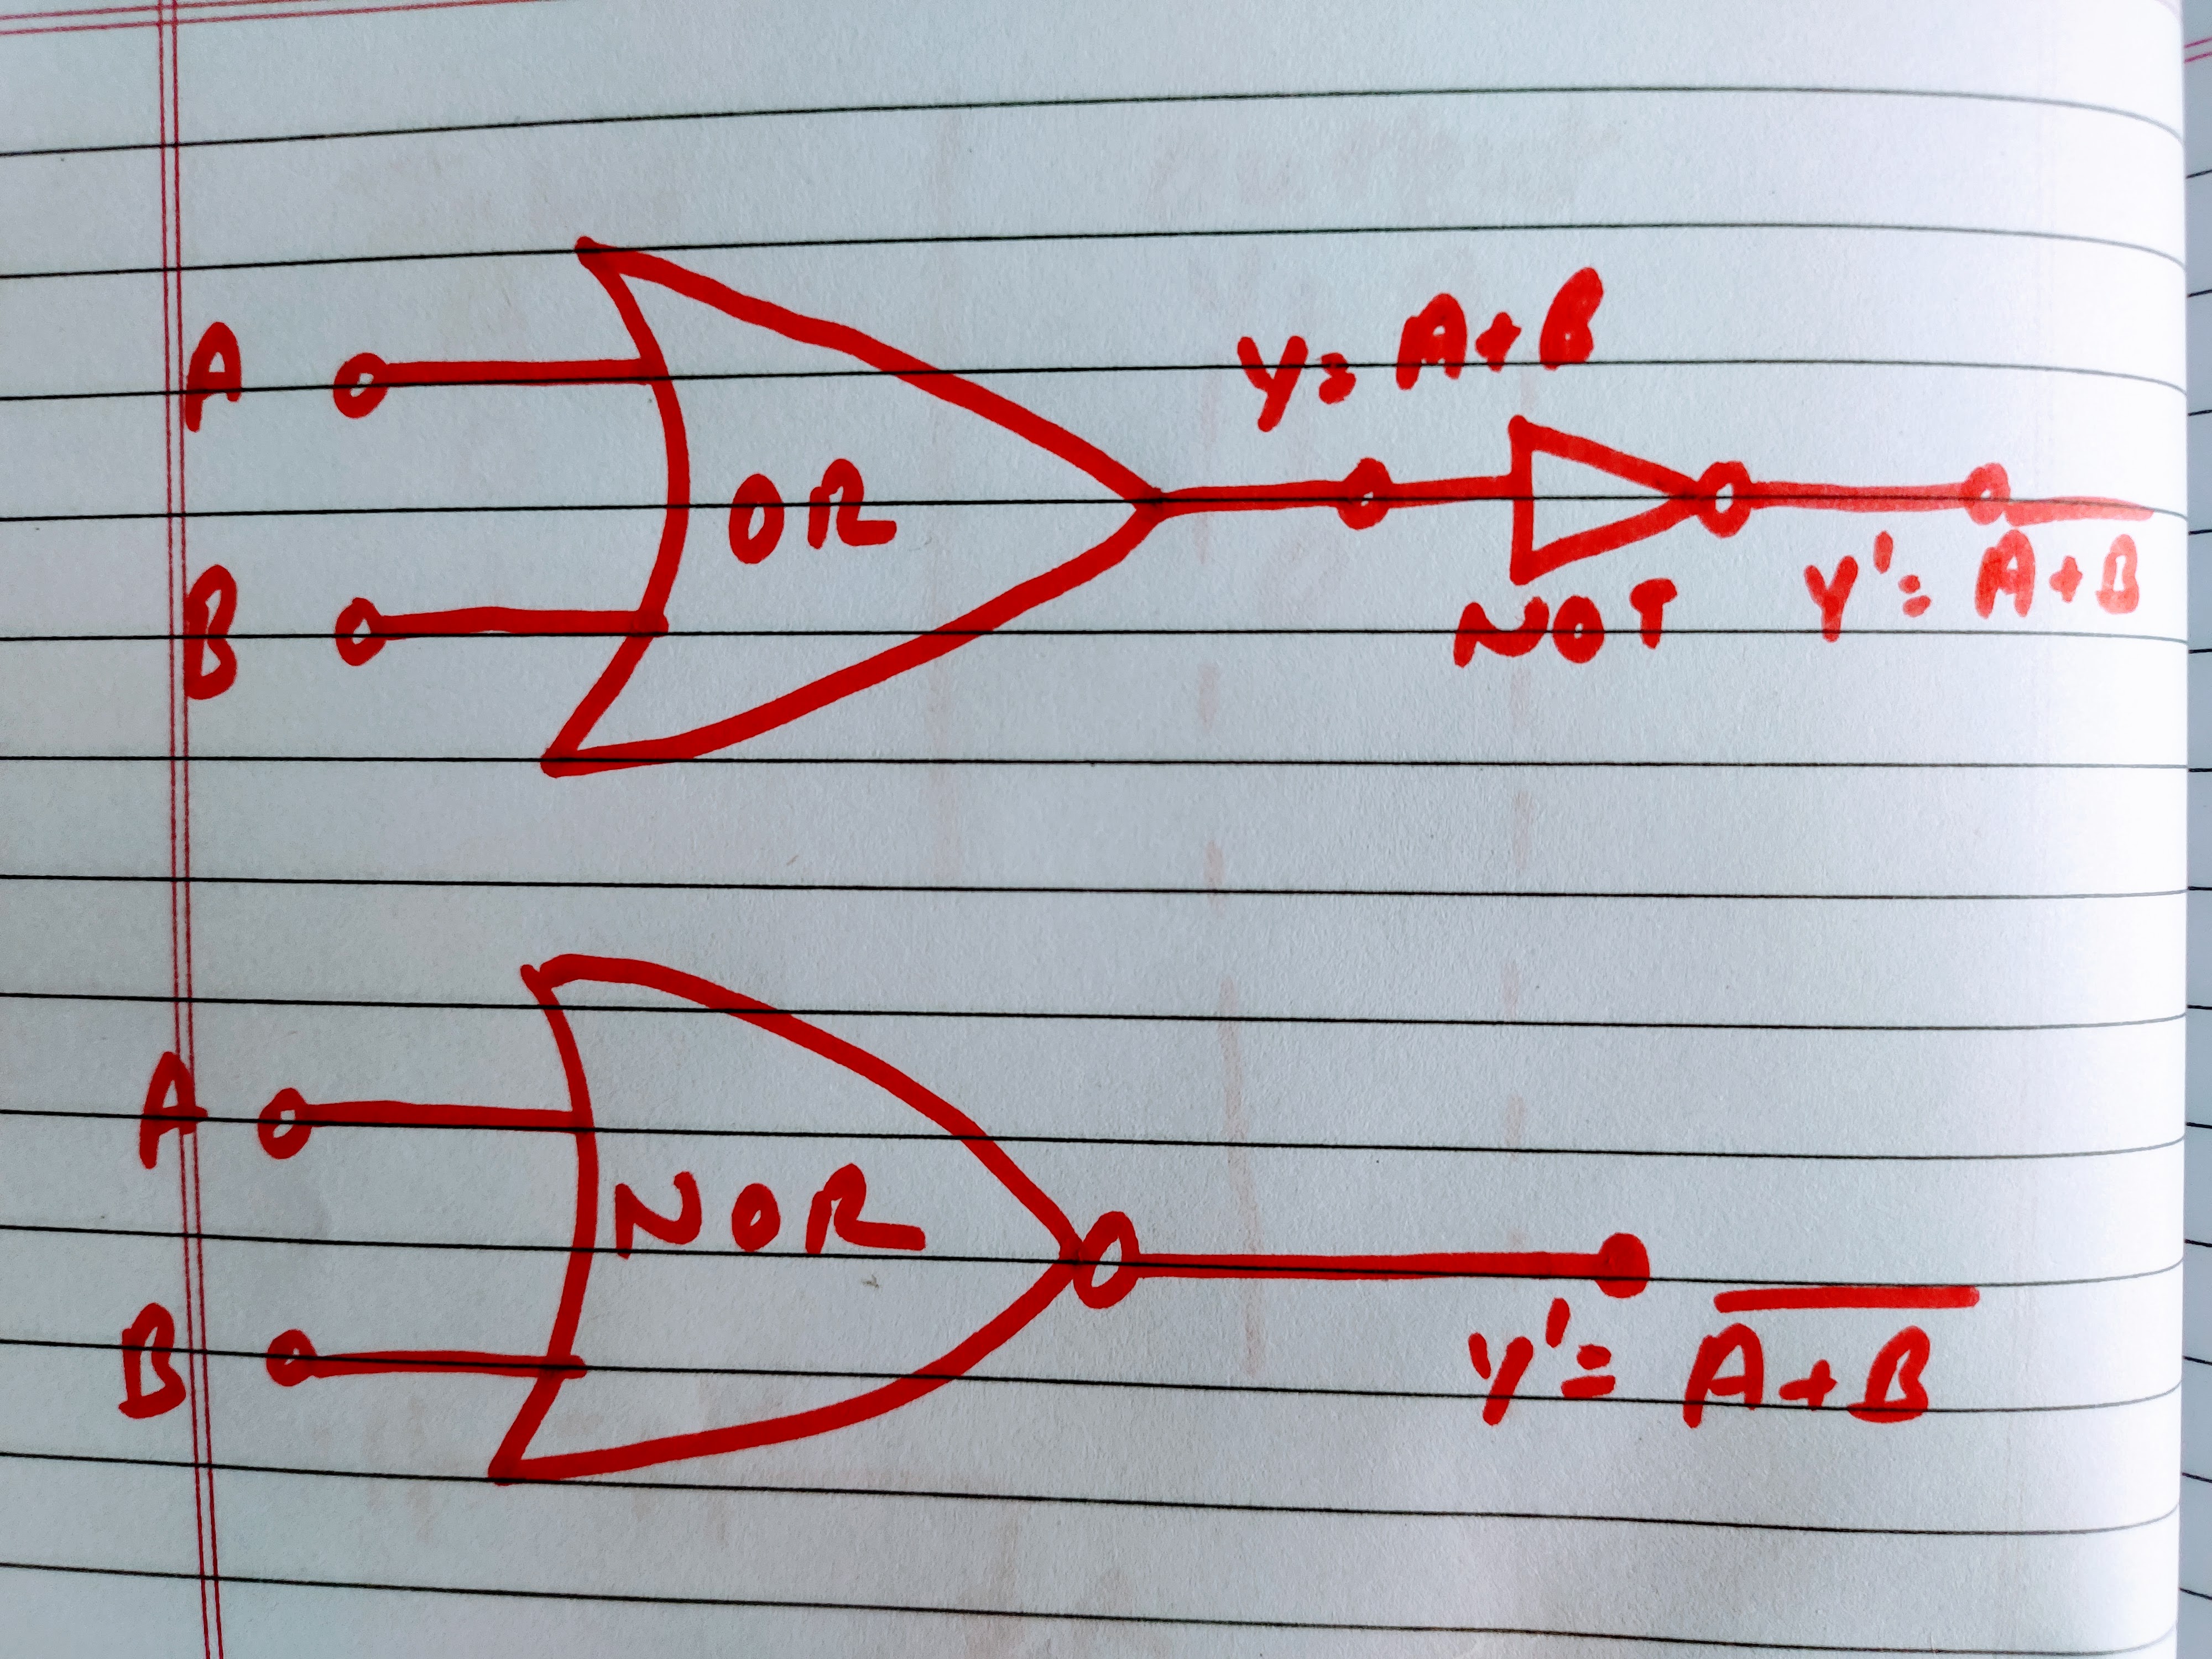 A
B
OR
Y = A+B
NOT
Y' = A̅+̅B̅
A
B
NOR
Y' = A̅+̅B̅